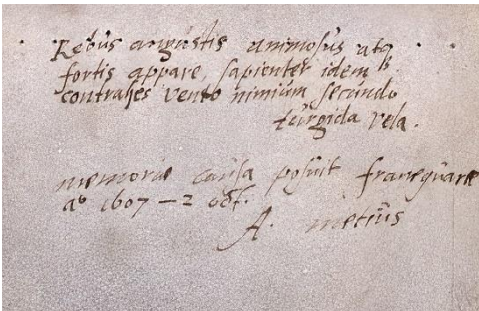 Rebus angustis animosus atq
fortis appare, sapienter idem
contrahes vento nimium secundo
turgida vela.
memoriæ causa posuit franequaræ
aº 1607 - 2 oct.
A. metius